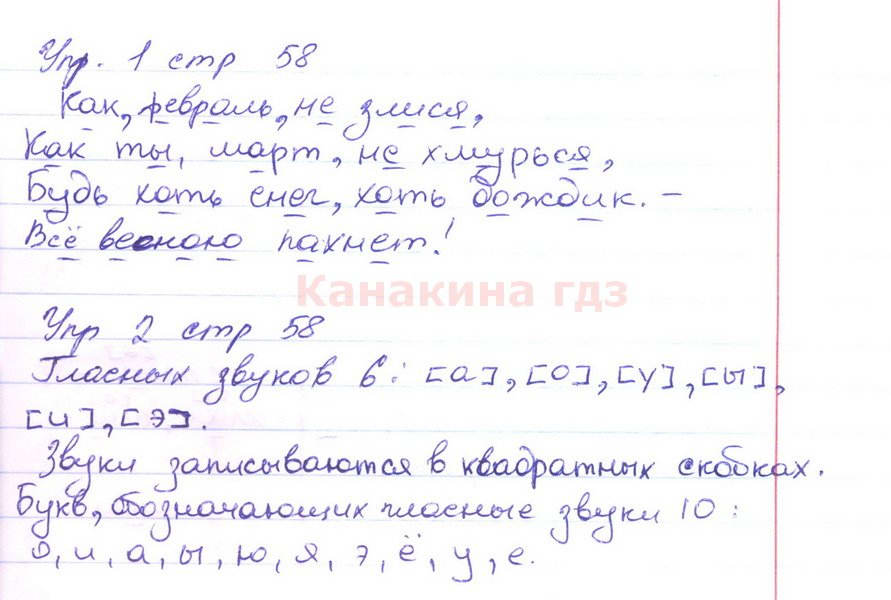 Упр. 1 стр 58
Как, февраль, не злися,
Как ты, март, не хмурься,
Будь хоть снег, хоть дождик. –
Всё весною пахнет!
Канакина гдз
Упр 2 стр 58
Гласных звуков 6: [а], [о], [у], [ы],
[и], [э].
Звуки записываются в квадратных скобках.
Букв, обозначающих гласные звуки 10:
о, и, а, ы, ю, я, э, ё, у, е.